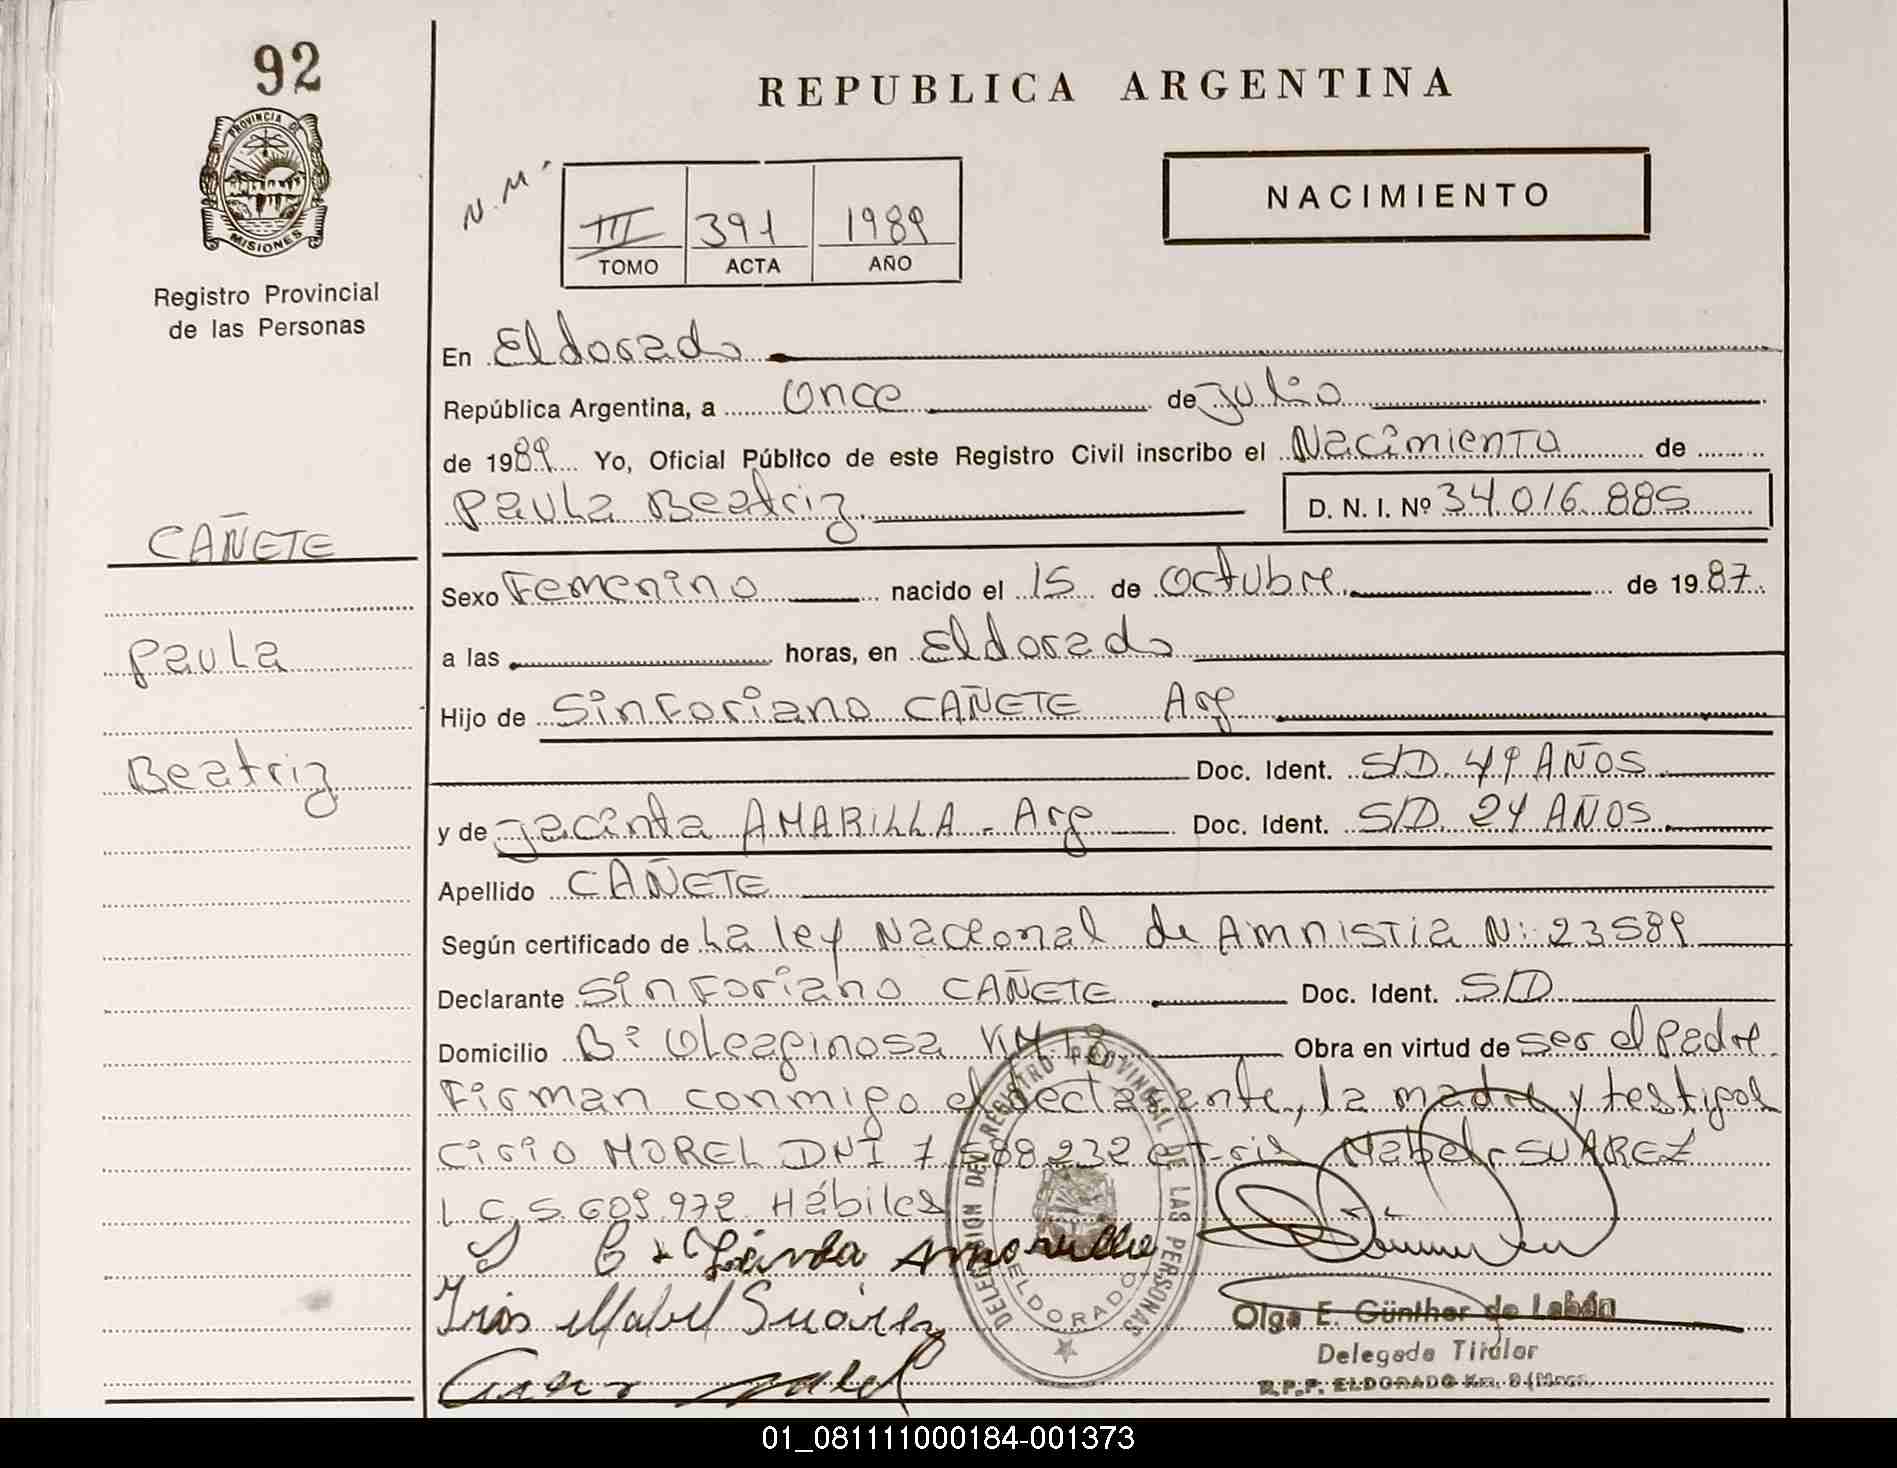 92
PROVINCIA DE
MISIONES
Registro Provincial
de las Personas
CAÑETE
Paula
Beatriz
REPUBLICA ARGENTINA
N.M.
III 391 1989
TOMO ACTA AÑO
NACIMIENTO
En Eldorado
República Argentina, a once de Julio
de 1989 Yo, Oficial Público de este Registro Civil inscribo el Nacimiento de
Paula Beatriz D. N. I. Nº 34.016.885
Sexo Femenino nacido el 15 de octubre de 1987
a las horas, en Eldorado
Hijo de Sinforiano CAÑETE Arg
Doc. Ident. S/D. 49 AÑOS
y de Jacinta AMARILLA - Arg Doc. Ident. S/D 24 AÑOS
Apellido CAÑETE
Según certificado de La ley Nacional de Amnistia N: 23589
Declarante Sinforiano CAÑETE Doc. Ident. S/D
Domicilio Bº Oleaginosa KM 18 Obra en virtud de ser el padre
Firman conmigo el declarante, la madre y testigos
Cirio MOREL DNI 7.588.232 e Iris Mabel SUAREZ
L.C. 5.609.972 Hábiles
S C + Jacinta Amarilla
Iris Mabel Suárez
DELEGACION DEL REGISTRO PROVINCIAL DE LAS PERSONAS
ELDORADO
Olga E. Günther de Labán
Delegada Titular
R.P.P. ELDORADO Km. 9 (Mnes.
01_081111000184-001373